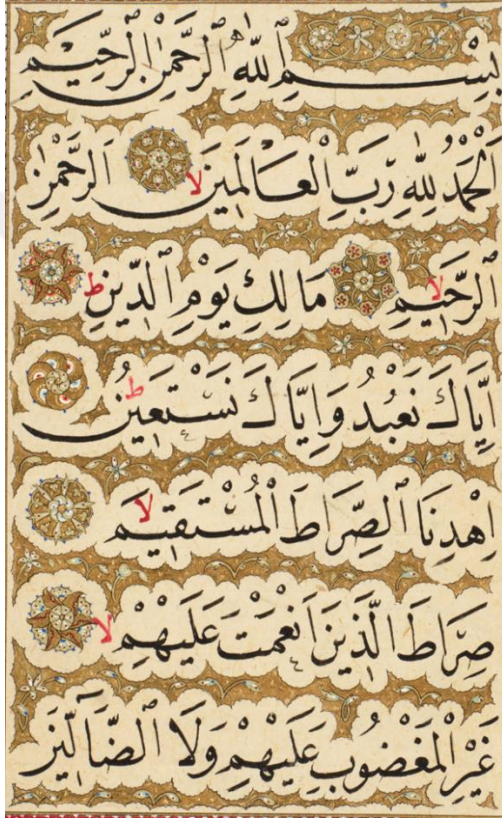 بِسْمِ ٱللّٰهِ ٱلرَّحْمٰنِ ٱلرَّحِيمِ
اَلْحَمْدُ لِلّٰهِ رَبِّ ٱلْعَالَمِينَ لا ٱلرَّحْمٰنِ
ٱلرَّحِيمِ لا مَالِكِ يَوْمِ ٱلدِّينِ ط
اِيَّاكَ نَعْبُدُ وَاِيَّاكَ نَسْتَعِينُ ط
اِهْدِنَا ٱلصِّرَاطَ ٱلْمُسْتَقِيمَ لا
صِرَاطَ ٱلَّذِينَ اَنْعَمْتَ عَلَيْهِمْ لا
غَيْرِ ٱلْمَغْضُوبِ عَلَيْهِمْ وَلَا ٱلضَّٓالِّينَ